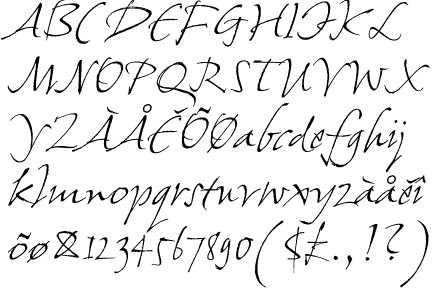 ABCDEFGHIJKL
MNOPQRSTUVWX
YZÀÅÉÕØabcdefghij
klmnopqrstuvwxyzàåéî
õø&1234567890($£.,!?)